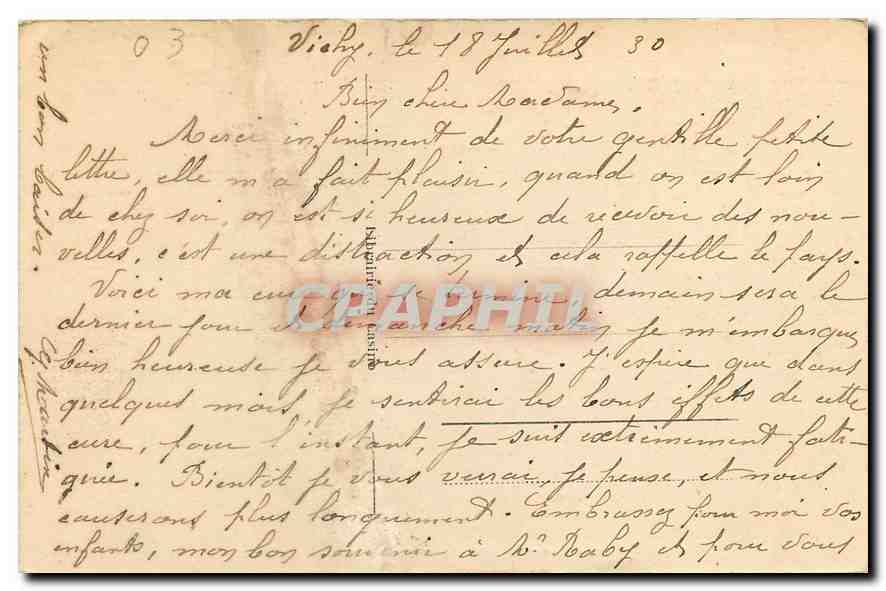 03
Vichy, le 18 Juillet 30
Bien chère Madame,
Merci infiniment de votre gentille petite
lettre, elle m'a fait plaisir, quand on est loin
de chez soi, on est si heureux de recevoir des nou-
velles, c'est une distraction et cela rappelle le pays.
Voici ma cure qui se termine, demain sera le
dernier jour et dimanche matin je m'embarque,
bien heureuse je vous assure. J'espère que dans
quelques mois je sentirai les bons effets de cette
cure, pour l'instant, je suis extrêmement fati-
guée. Bientôt je vous verrai, je pense, et nous
causerons plus longuement. Embrassez pour moi vos
enfants, mon bon souvenir à Mr Raby et pour vous
un bon baiser.
Martin
Librairie du Casino
CPAPHIL